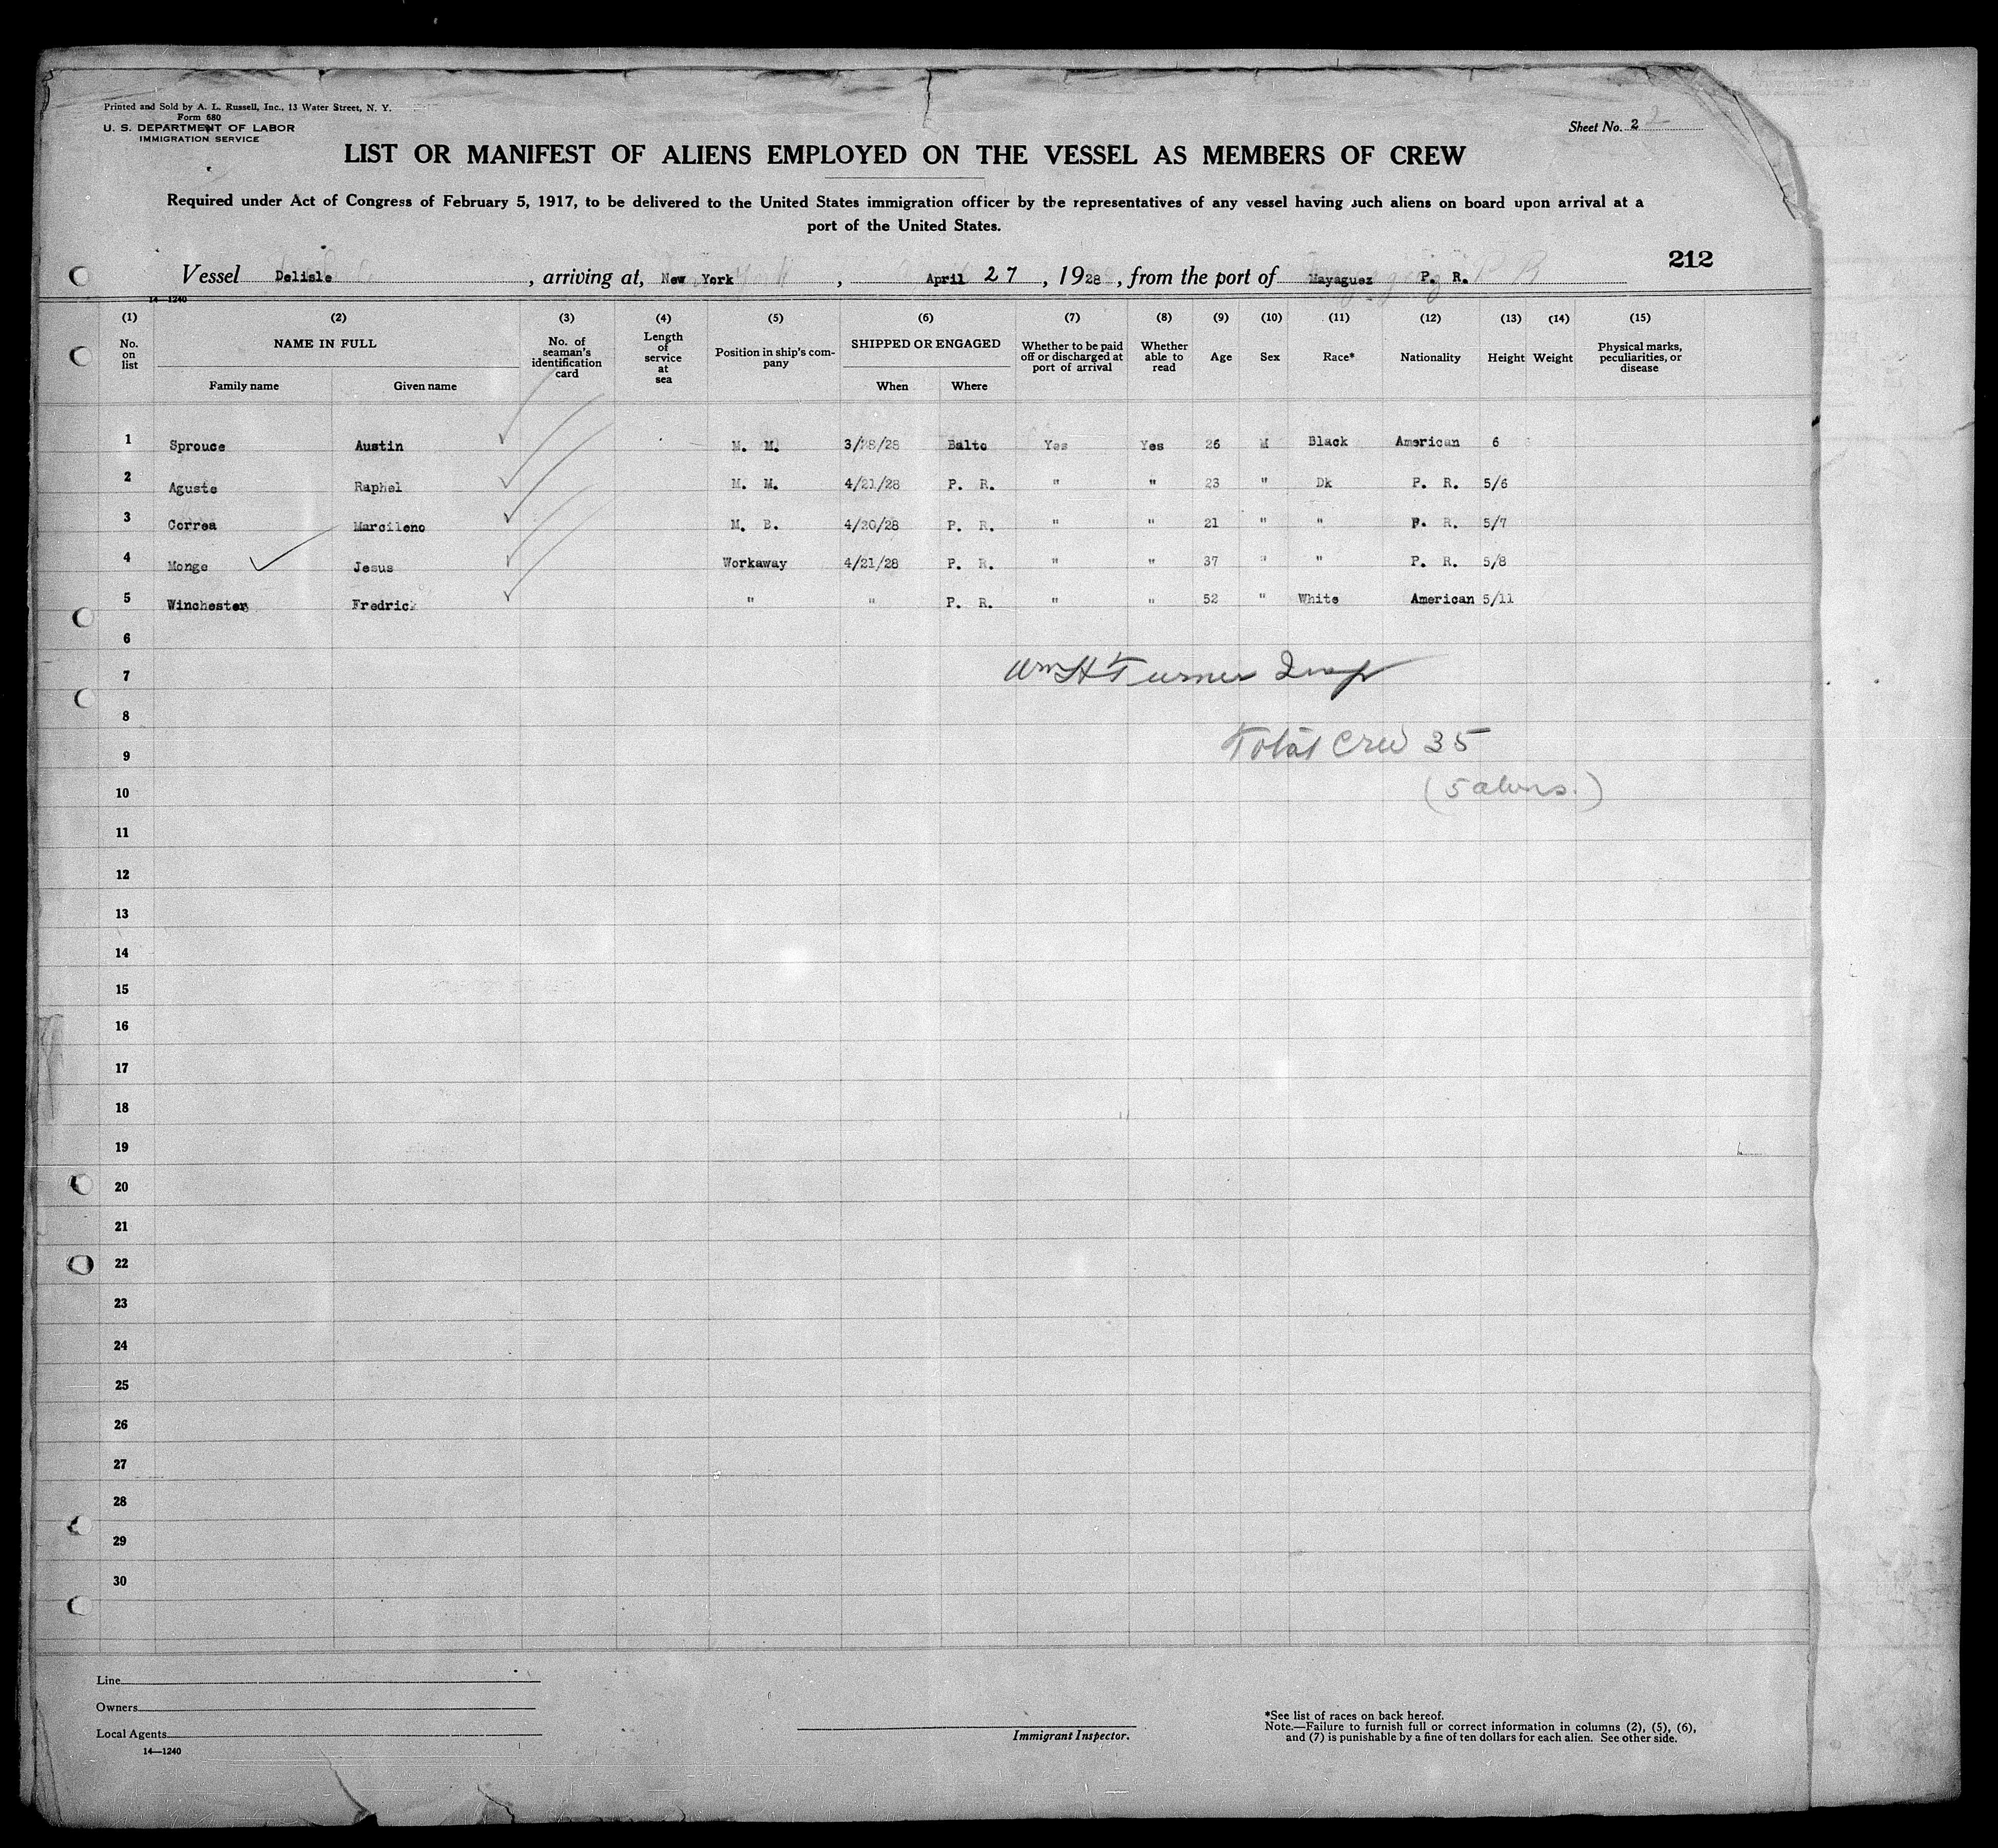 Printed and Sold by A. L. Russell, Inc., 13 Water Street, N. Y.
Form 680
U. S. DEPARTMENT OF LABOR
IMMIGRATION SERVICE
Sheet No. 2 2
LIST OR MANIFEST OF ALIENS EMPLOYED ON THE VESSEL AS MEMBERS OF CREW
Required under Act of Congress of February 5, 1917, to be delivered to the United States immigration officer by the representatives of any vessel having such aliens on board upon arrival at a
port of the United States.
212
Vessel Delisle, arriving at, New York, April 27, 1928, from the port of Mayaguez P. R.
14—1240
(1) (2) (3) (4) (5) (6) (7) (8) (9) (10) (11) (12) (13) (14) (15)
No. on list
NAME IN FULL
Family name Given name
No. of seaman's identification card
Length of service at sea
Position in ship's com-pany
SHIPPED OR ENGAGED
When Where
Whether to be paid off or discharged at port of arrival
Whether able to read
Age Sex Race* Nationality Height Weight
Physical marks, peculiarities, or disease
1 Sprouce Austin M. M. 3/28/28 Balto Yes Yes 26 M Black American 6
2 Aguste Raphel M. M. 4/21/28 P. R. " " 23 " Dk P. R. 5/6
3 Correa Marcileno M. B. 4/20/28 P. R. " " 21 " " P. R. 5/7
4 Monge Jesus Workaway 4/21/28 P. R. " " 37 " " P. R. 5/8
5 Winchester Fredric " " P. R. " " 52 " White American 5/11
6
7 Wm H Turner Insp
8
9 Total Crew 35
10 (5 aliens.)
11
12
13
14
15
16
17
18
19
20
21
22
23
24
25
26
27
28
29
30
Line
Owners
Local Agents
14—1240
Immigrant Inspector.
*See list of races on back hereof.
Note.—Failure to furnish full or correct information in columns (2), (5), (6),
and (7) is punishable by a fine of ten dollars for each alien. See other side.